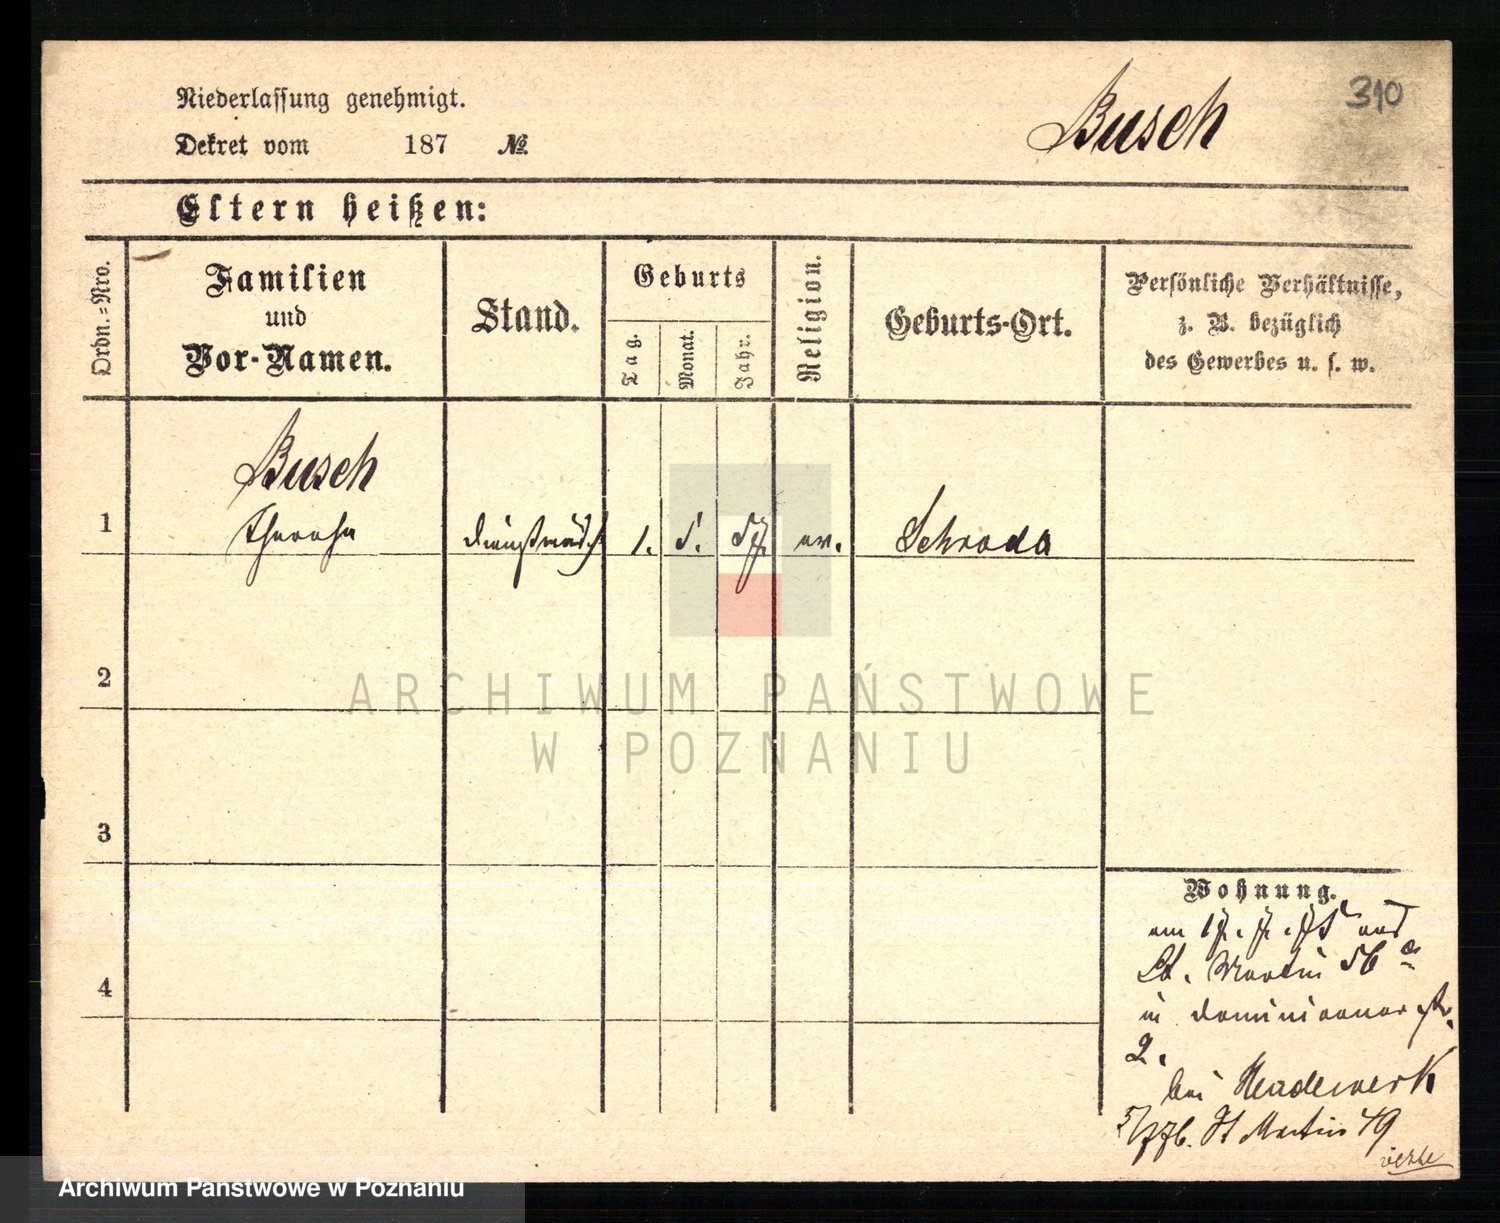 Niederlassung genehmigt.
Dekret vom 187 №.
Busch
310
Eltern heißen:
Ordn.=Nro.
Familien
und
Vor-Namen.
Stand.
Geburts
Tag.
Monat.
Jahr.
Religion.
Geburts-Ort.
Persönliche Verhältnisse,
z. B. bezüglich
des Gewerbes u. s. w.
Busch
1 Therese Dienstmädch 1. 5. 57. ev. Schroda
2
3
4
Wohnung.
am 17. 7. 75 aus
St. Martin 56 a
in Dominicaner str.
2.
bei Hadewerk
St Martin 49
ARCHIWUM PAŃSTWOWE
W POZNANIU
Archiwum Państwowe w Poznaniu